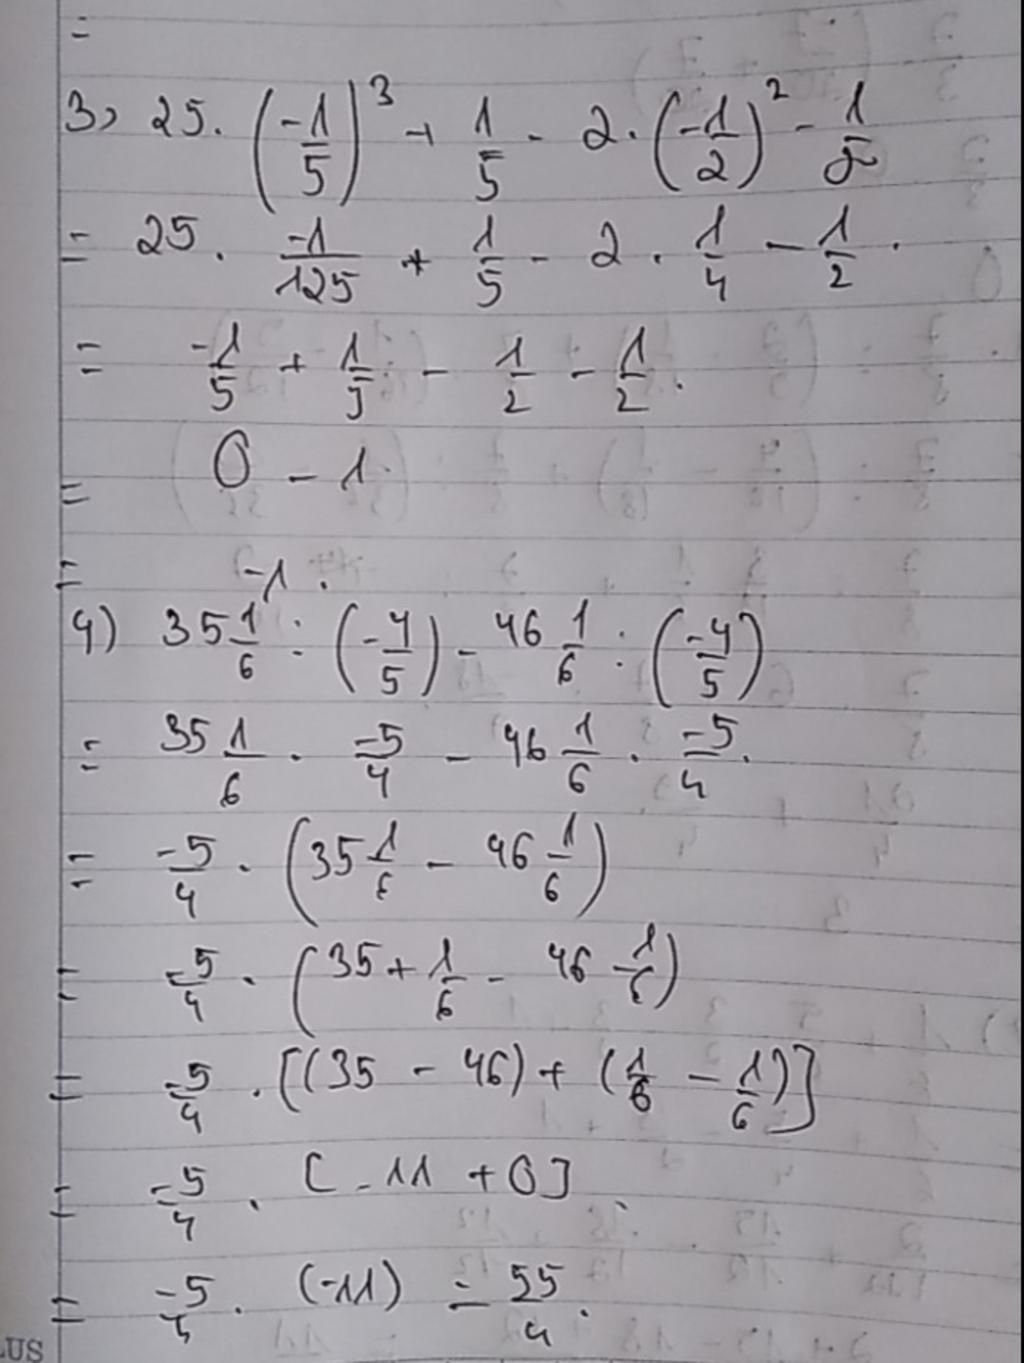 =
3) 25. (-1/5)^3 + 1/5 - 2. (-1/2)^2 - 1/2
= 25. -1/125 + 1/5 - 2. 1/4 - 1/2.
= -1/5 + 1/5 - 1/2 - 1/2.
= 0 - 1
= -1.
4) 35 1/6 : (-4/5) - 46 1/6 : (-4/5)
= 35 1/6 . -5/4 - 46 1/6 . -5/4.
= -5/4 . (35 1/6 - 46 1/6)
= -5/4 . (35 + 1/6 - 46 - 1/6)
= -5/4 . [(35 - 46) + (1/6 - 1/6)]
= -5/4 . [-11 + 0].
= -5/4 . (-11) = 55/4.
LUS